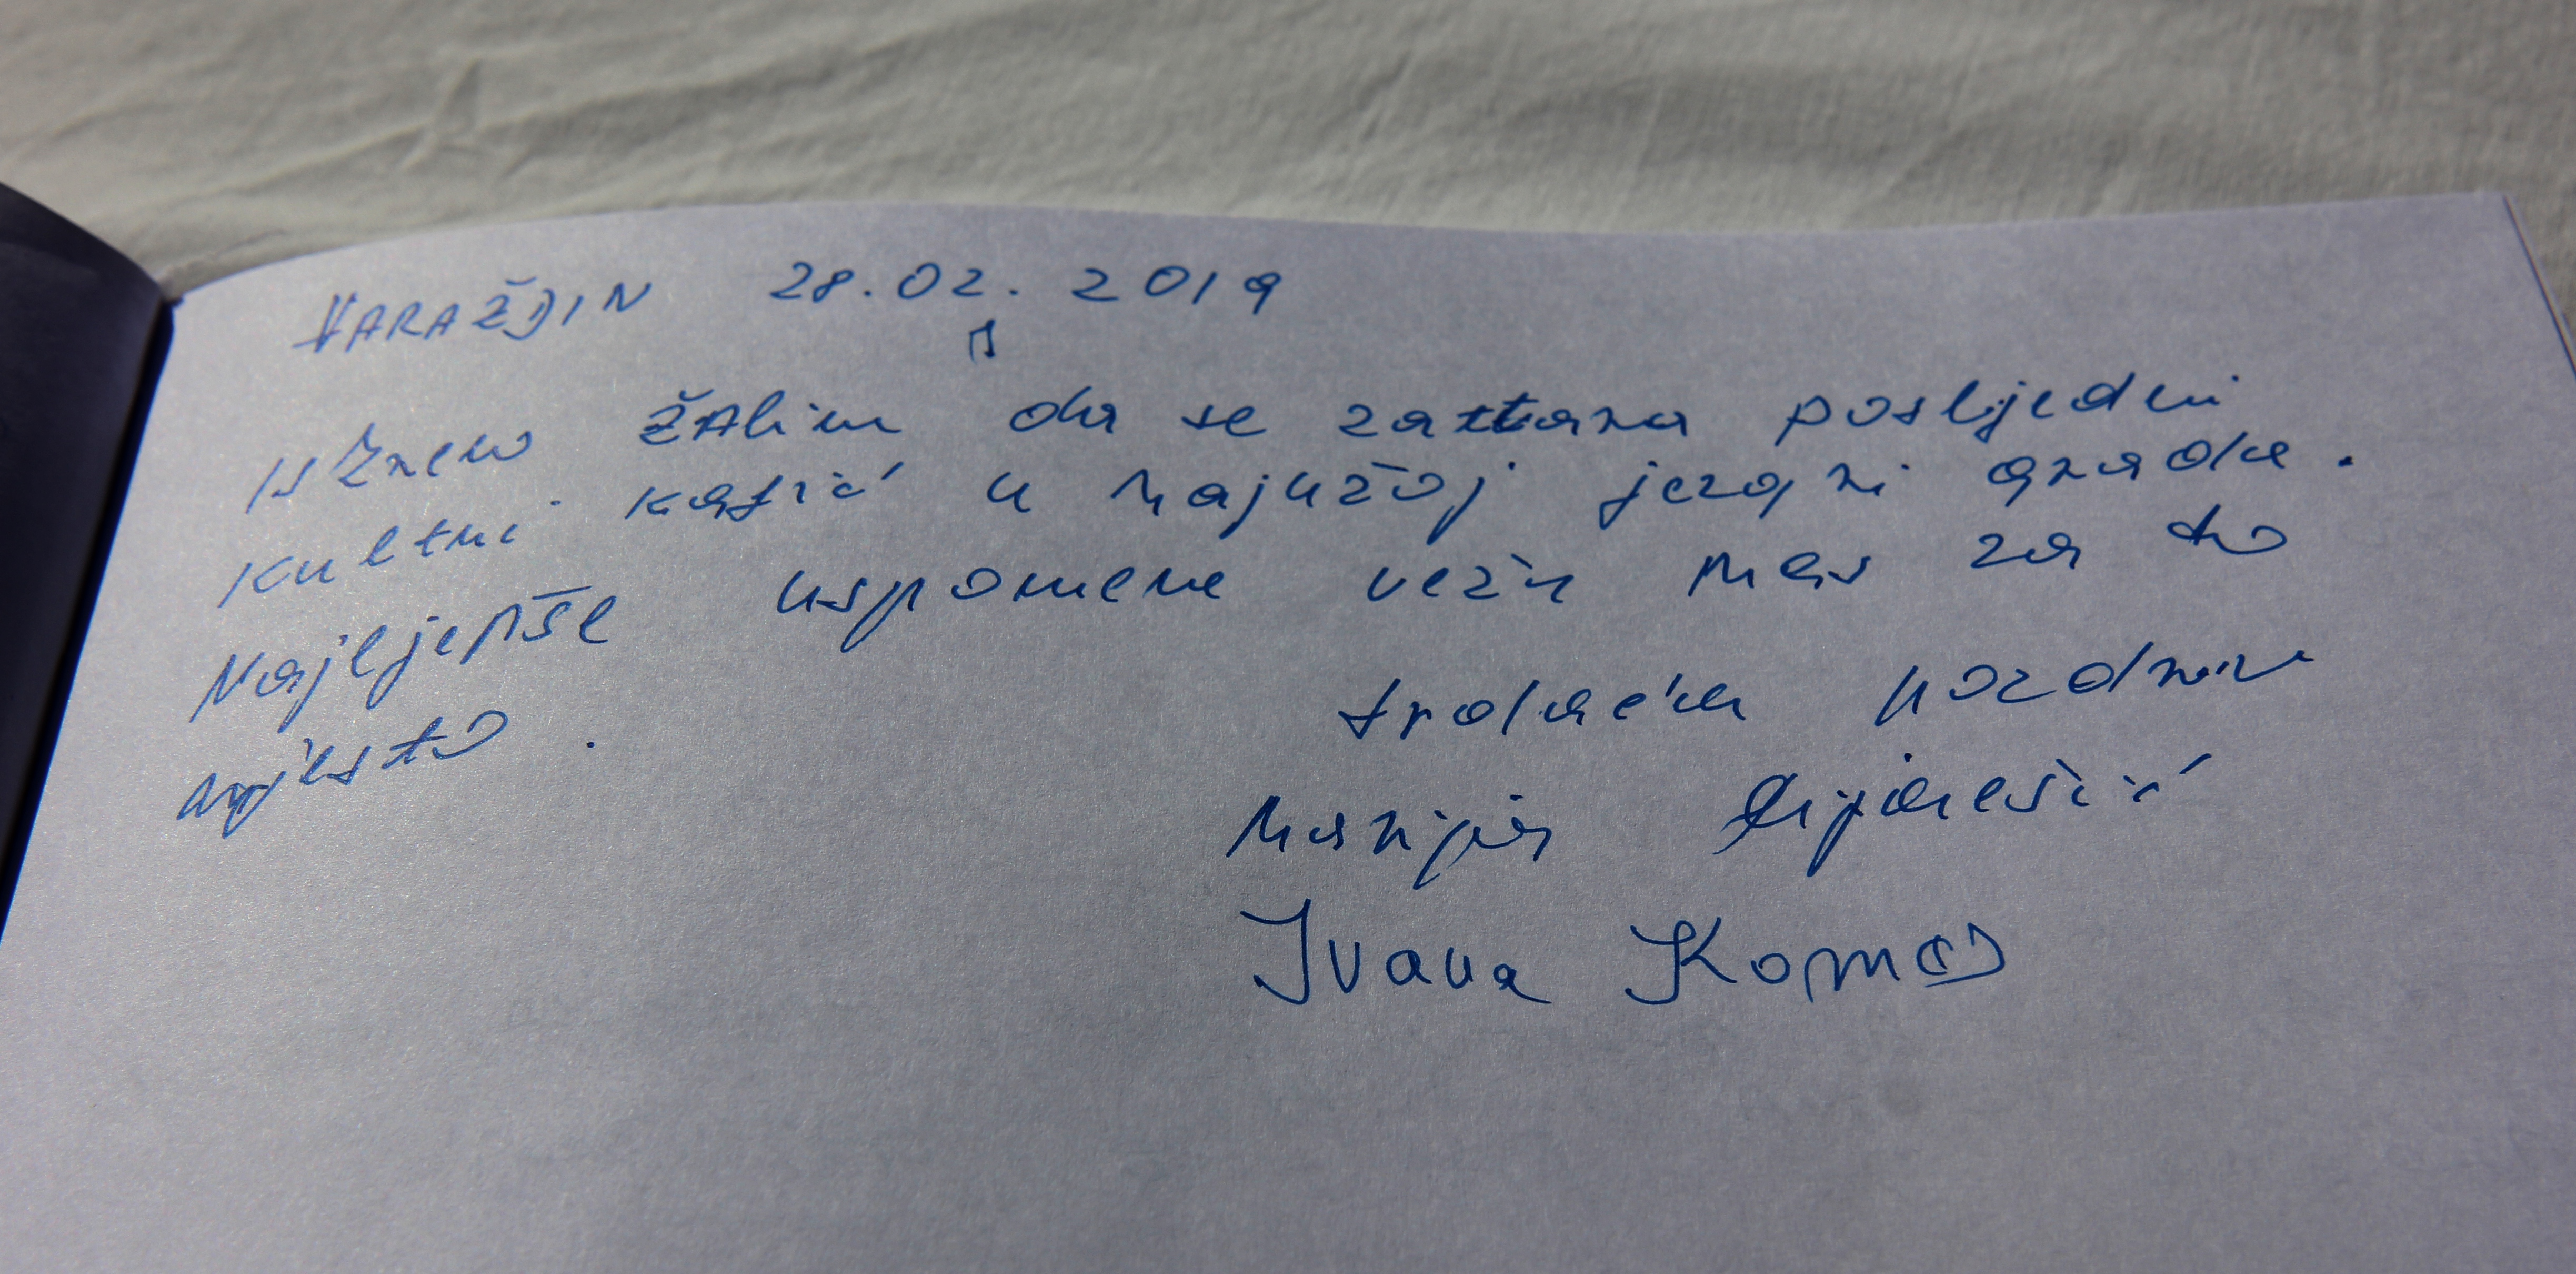 VARAŽDIN 28.02.2019
Iskreno žalim da se zatvara posljedni
kultni kafić u najužoj jezgri grada.
Najljepše uspomene vežu nas za to
mjesto.
Srdačan pozdrav
Marija
Ivana Komes